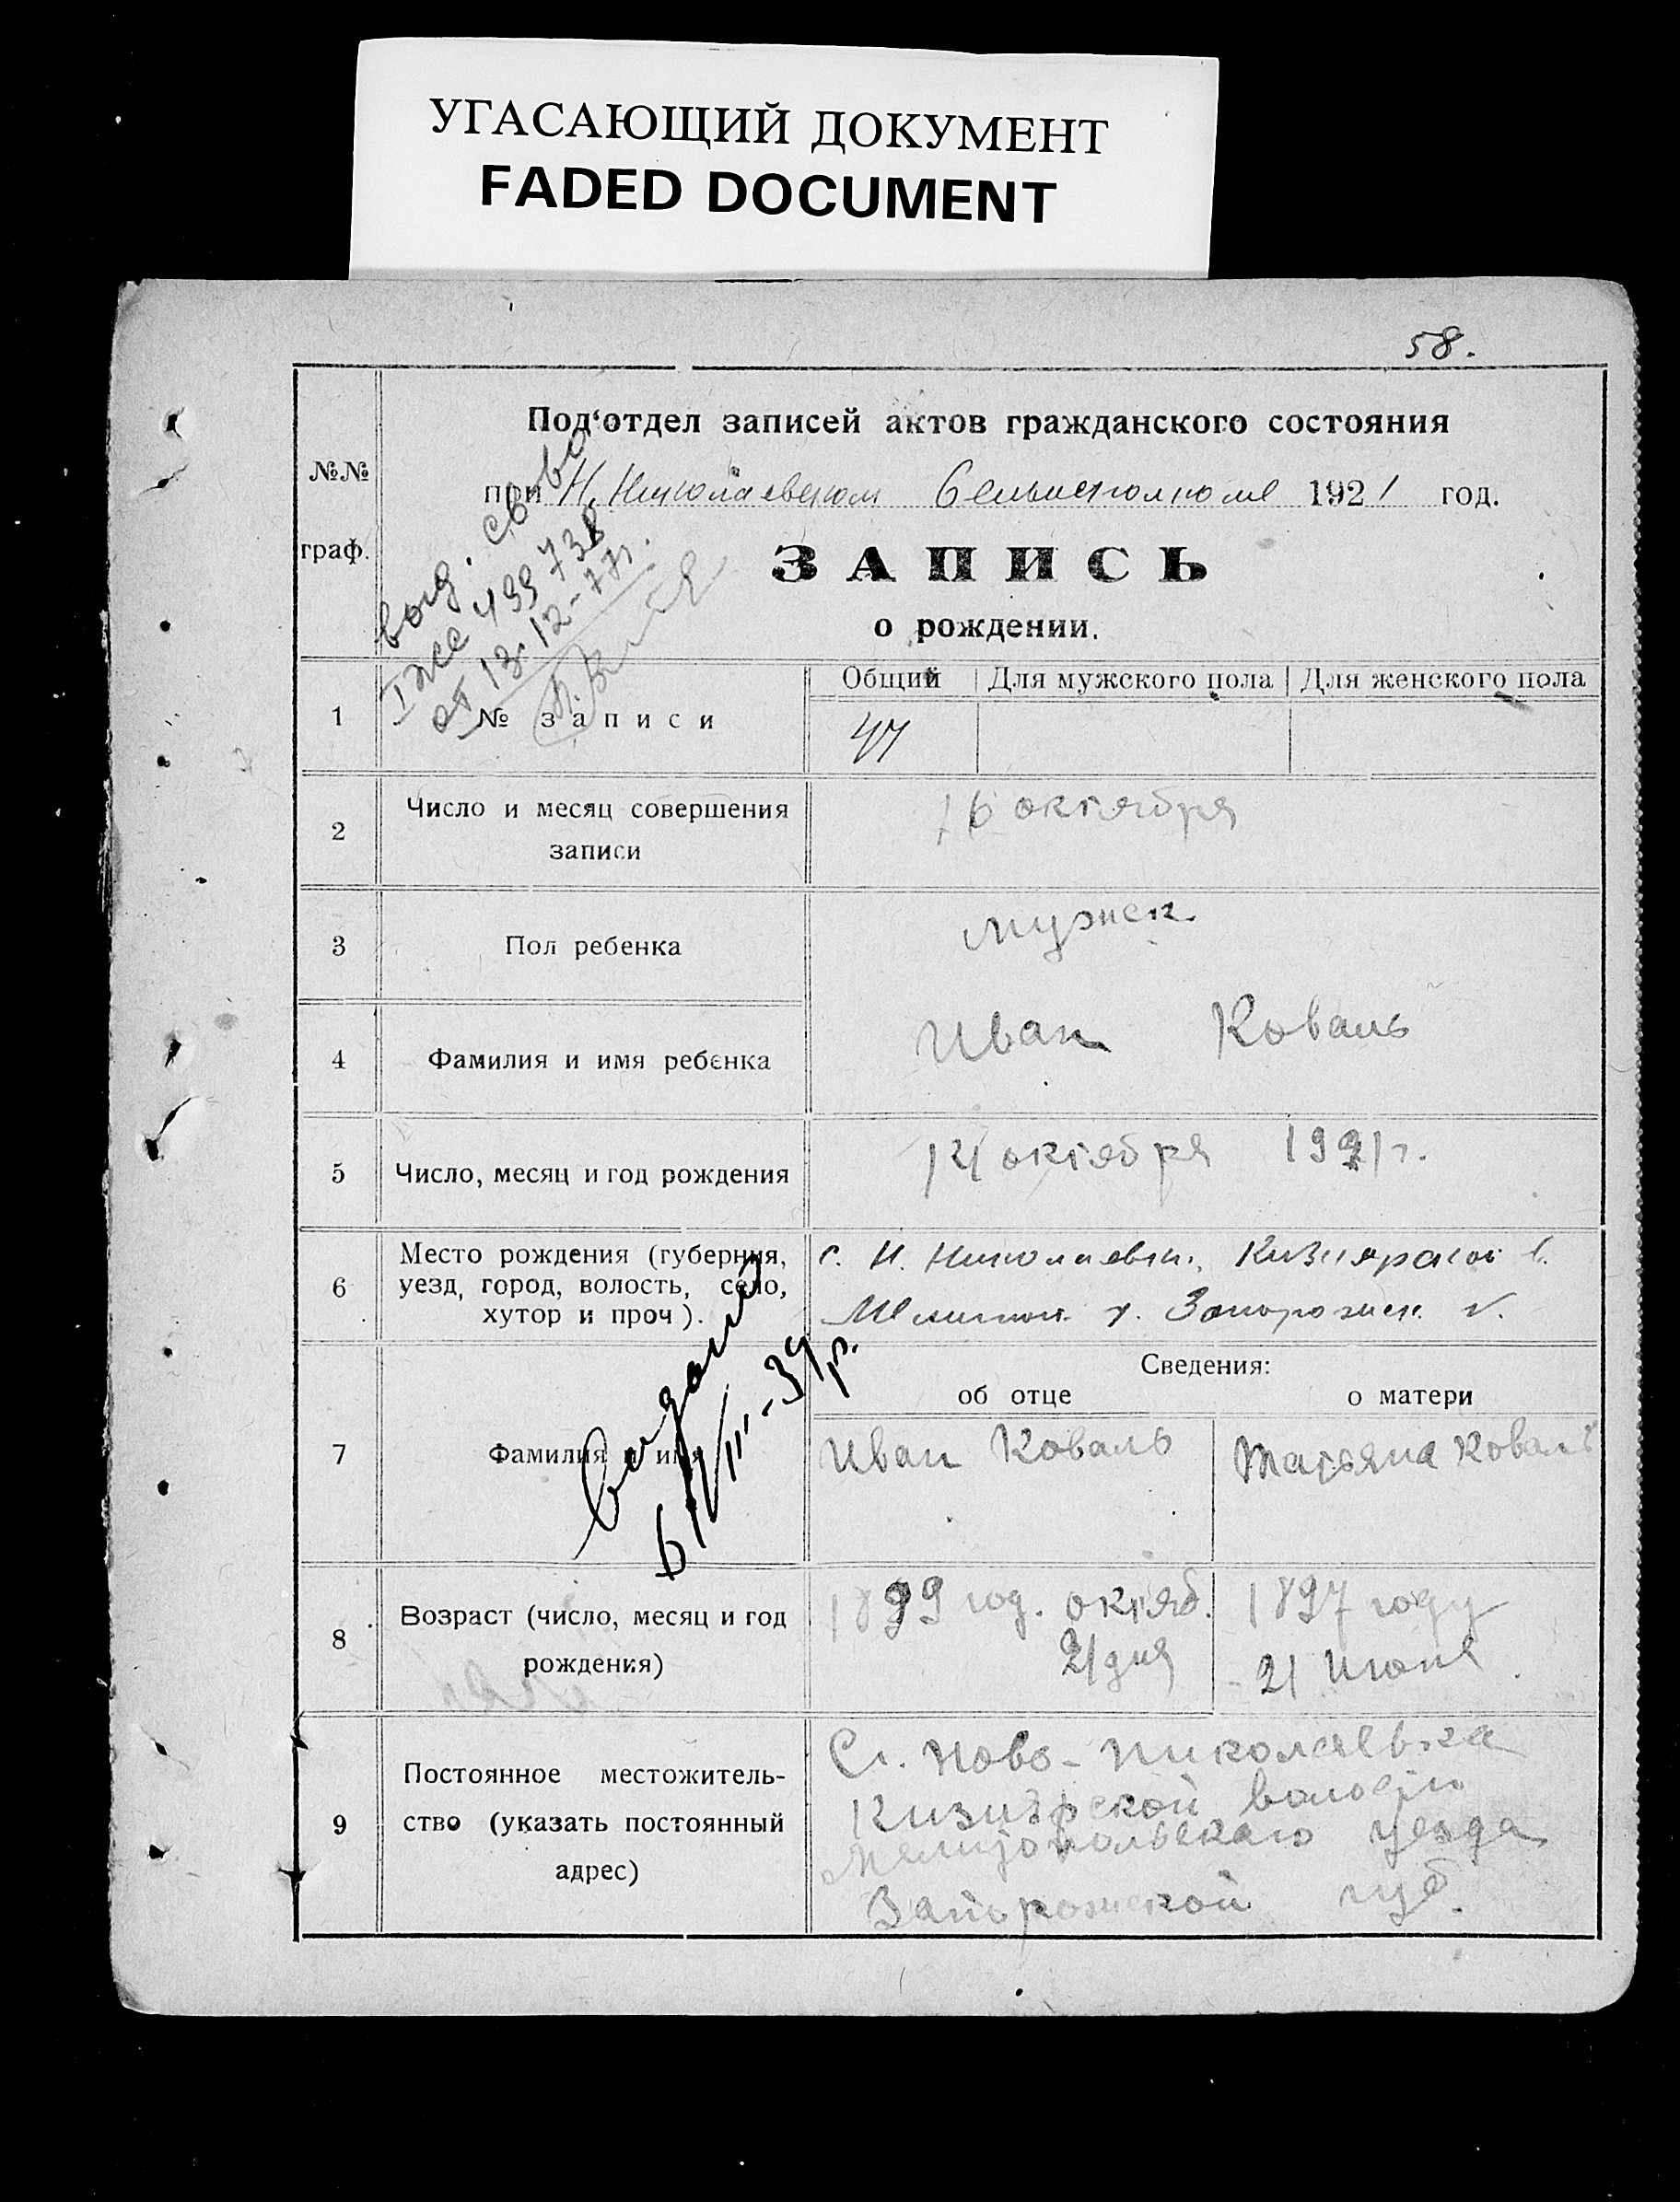 УГАСАЮЩИЙ ДОКУМЕНТ
FADED DOCUMENT
58.
Под'отдел записей актов гражданского состояния
№№
граф.
при Н. Николаевском Сельисполкоме 1921 год.
ЗАПИСЬ
о рождении.
выд. св-во
I ЖС 499738
от 13-12-77г.
Общий Для мужского пола Для женского пола
1 № записи 47
2 Число и месяц совершения
записи
16 октября
3 Пол ребенка мужск.
4 Фамилия и имя ребенка Иван Коваль
5 Число, месяц и год рождения 14 октября 1921 г.
6 Место рождения (губерния,
уезд, город, волость, село,
хутор и проч).
с. Н. Николаевки, Кизиярской в.
Мелитоп. у. Запорожск. г.
Сведения:
об отце о матери
7 Фамилия и имя Иван Коваль Татьяна Коваль
6/VIII-39 р.
8 Возраст (число, месяц и год
рождения)
1899 год. октяб. 1897 году
21 дня 21 Июня
9 Постоянное местожитель-
ство (указать постоянный
адрес)
Ст. Ново-Николаевка
Кизиярской волости
Мелитопольскаго уезда
Запорожской губ.